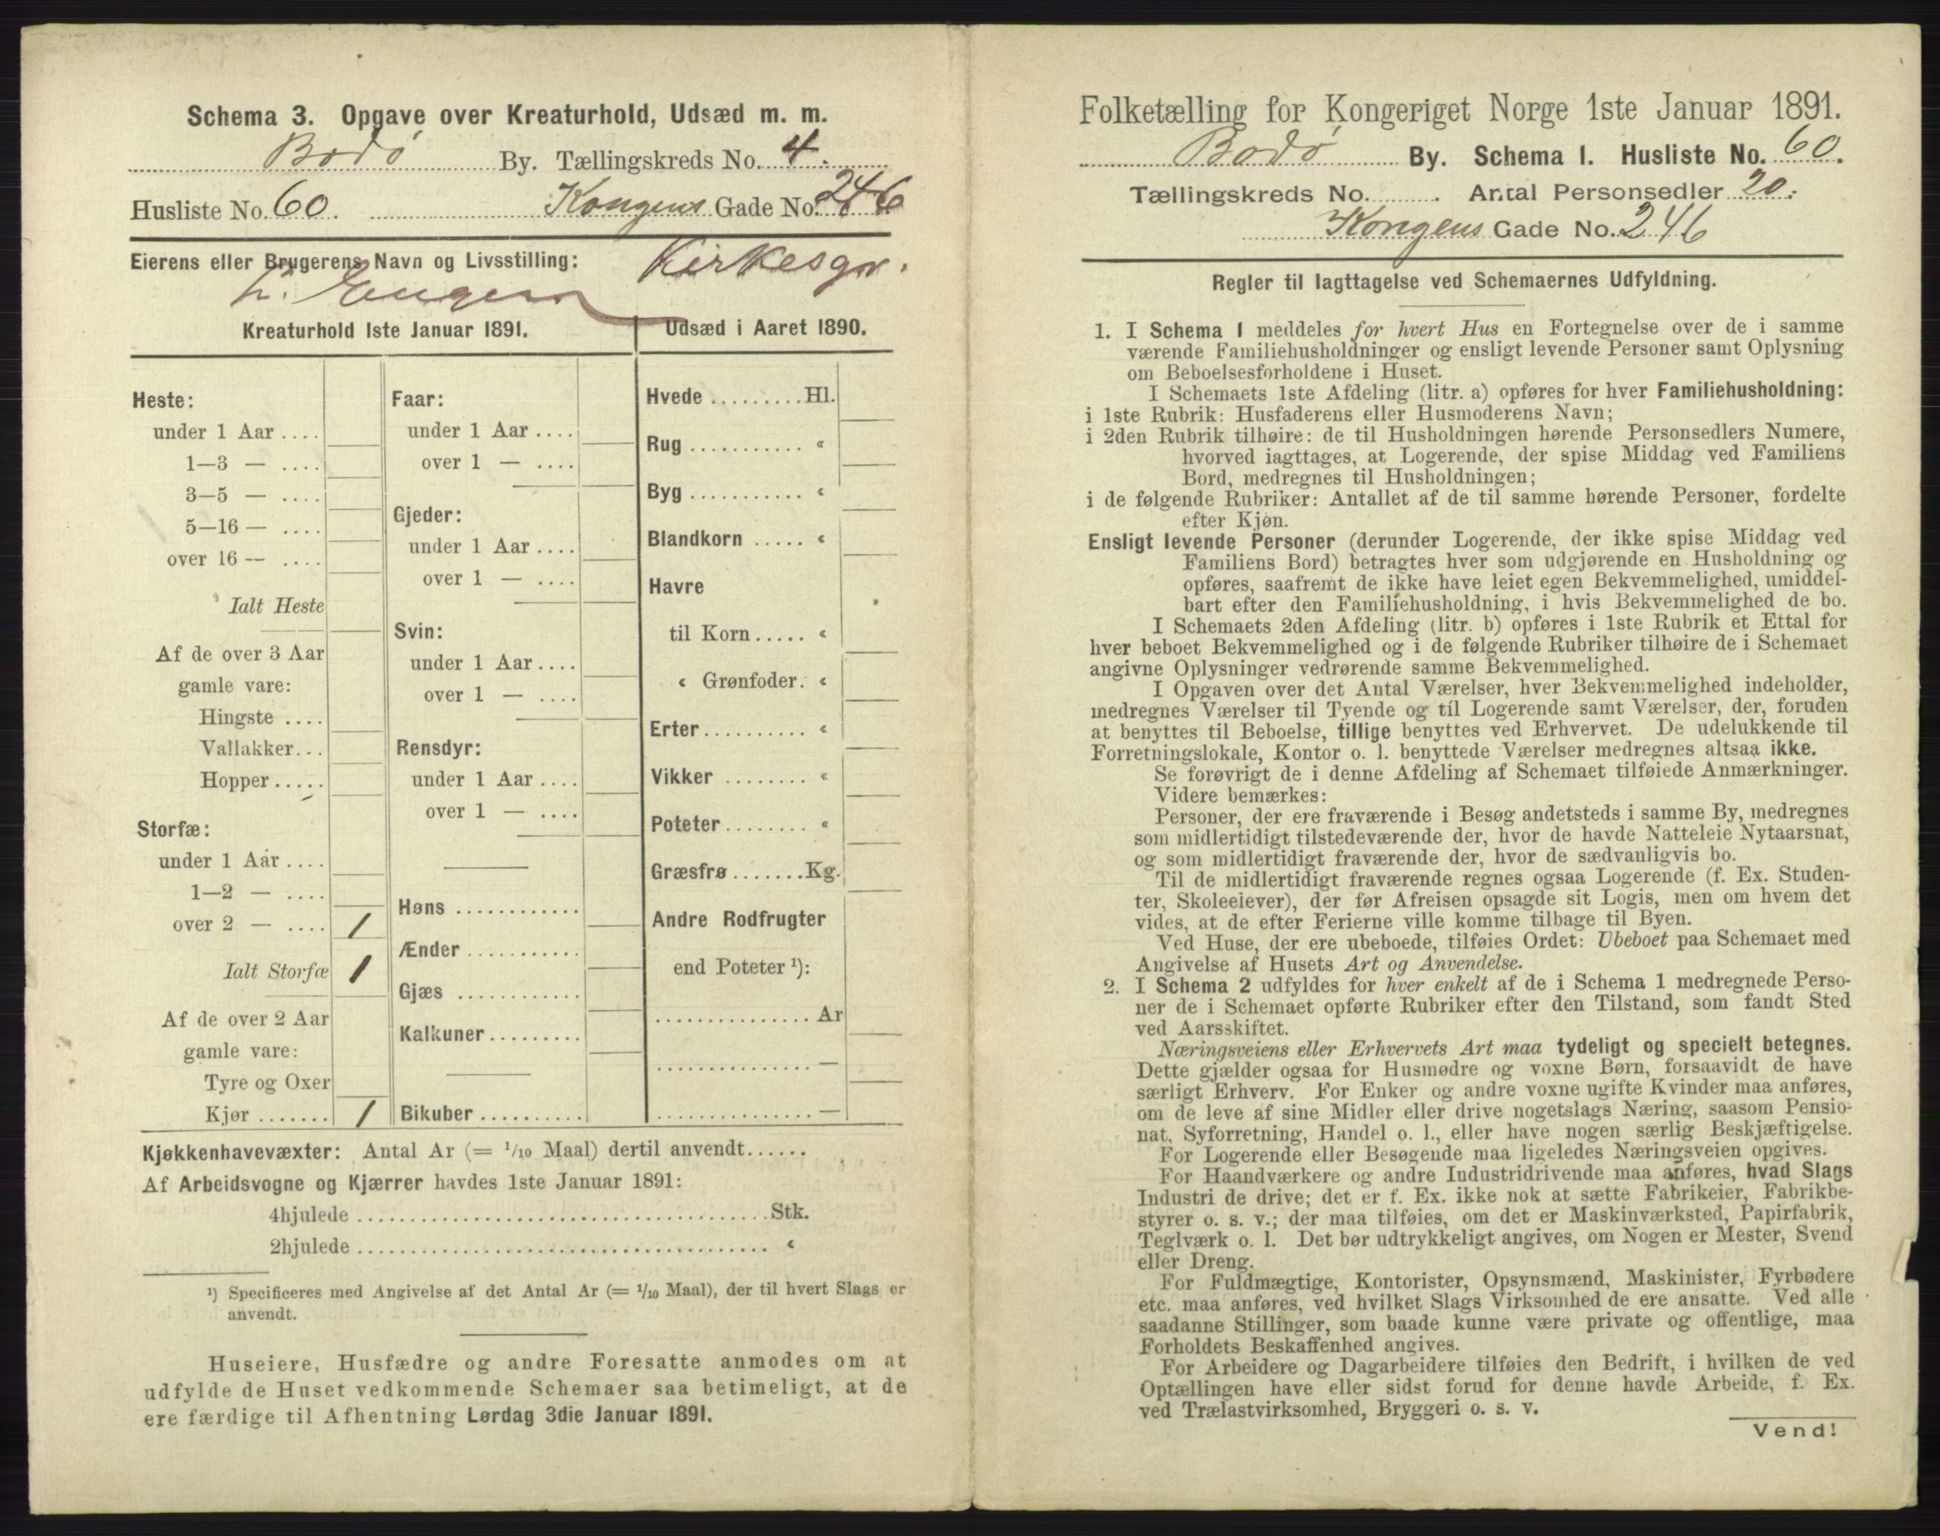 Schema 3. Opgave over Kreaturhold, Udsæd m. m.
Bodø By. Tællingskreds No. 4.
Husliste No. 60. Kongens Gade No. 246
Eierens eller Brugerens Navn og Livsstilling: Kirkesgr.
Kreaturhold 1ste Januar 1891.
Heste:
under 1 Aar ....
1—3 — ....
3—5 — ....
5—16 — ....
over 16 — ....
Ialt Heste
Af de over 3 Aar
gamle vare:
Hingste ....
Vallakker...
Hopper.....
Storfæ:
under 1 Aar ....
1—2 — ....
over 2 — .... 1
Ialt Storfæ 1
Af de over 2 Aar
gamle vare:
Tyre og Oxer
Kjør ....... 1
Faar:
under 1 Aar ....
over 1 — ....
Gjeder:
under 1 Aar ....
over 1 — ....
Svin:
under 1 Aar ....
over 1 — ....
Rensdyr:
under 1 Aar ....
over 1 — ....
Høns ............
Ænder ...........
Gjæs ............
Kalkuner .........
Bikuber ..........
Udsæd i Aaret 1890.
Hvede .........Hl.
Rug ........... «
Byg ........... «
Blandkorn ..... «
Havre
til Korn ..... «
« Grønfoder. «
Erter .......... «
Vikker ........ «
Poteter ........ «
Græsfrø .......Kg.
Andre Rodfrugter
end Poteter ¹):
............... Ar
............... —
............... —
Kjøkkenhavevæxter: Antal Ar (= 1/10 Maal) dertil anvendt......
Af Arbeidsvogne og Kjærrer havdes 1ste Januar 1891:
4hjulede ........................................Stk.
2hjulede ........................................ «
¹) Specificeres med Angivelse af det Antal Ar (= 1/10 Maal), der til hvert Slags er
anvendt.
Huseiere, Husfædre og andre Foresatte anmodes om at
udfylde de Huset vedkommende Schemaer saa betimeligt, at de
ere færdige til Afhentning Lørdag 3die Januar 1891.
Folketælling for Kongeriget Norge 1ste Januar 1891.
Bodø By. Schema 1. Husliste No. 60.
Tællingskreds No. ........ Antal Personsedler 20.
Kongens Gade No. 246
Regler til Iagttagelse ved Schemaernes Udfyldning.
1. I Schema 1 meddeles for hvert Hus en Fortegnelse over de i samme
værende Familiehusholdninger og ensligt levende Personer samt Oplysning
om Beboelsesforholdene i Huset.
I Schemaets 1ste Afdeling (litr. a) opføres for hver Familiehusholdning:
i 1ste Rubrik: Husfaderens eller Husmoderens Navn;
i 2den Rubrik tilhøire: de til Husholdningen hørende Personsedlers Numere,
hvorved iagttages, at Logerende, der spise Middag ved Familiens
Bord, medregnes til Husholdningen;
i de følgende Rubriker: Antallet af de til samme hørende Personer, fordelte
efter Kjøn.
Ensligt levende Personer (derunder Logerende, der ikke spise Middag ved
Familiens Bord) betragtes hver som udgjørende en Husholdning og
opføres, saafremt de ikke have leiet egen Bekvemmelighed, umiddel-
bart efter den Familiehusholdning, i hvis Bekvemmelighed de bo.
I Schemaets 2den Afdeling (litr. b) opføres i 1ste Rubrik et Ettal for
hver beboet Bekvemmelighed og i de følgende Rubriker tilhøire de i Schemaet
angivne Oplysninger vedrørende samme Bekvemmelighed.
I Opgaven over det Antal Værelser, hver Bekvemmelighed indeholder,
medregnes Værelser til Tyende og til Logerende samt Værelser, der, foruden
at benyttes til Beboelse, tillige benyttes ved Erhvervet. De udelukkende til
Forretningslokale, Kontor o. l. benyttede Værelser medregnes altsaa ikke.
Se forøvrigt de i denne Afdeling af Schemaet tilføiede Anmærkninger.
Videre bemærkes:
Personer, der ere fraværende i Besøg andetsteds i samme By, medregnes
som midlertidigt tilstedeværende der, hvor de havde Natteleie Nytaarsnat,
og som midlertidigt fraværende der, hvor de sædvanligvis bo.
Til de midlertidigt fraværende regnes ogsaa Logerende (f. Ex. Studen-
ter, Skoleeiever), der før Afreisen opsagde sit Logis, men om hvem det
vides, at de efter Ferierne ville komme tilbage til Byen.
Ved Huse, der ere ubeboede, tilføies Ordet: Ubeboet paa Schemaet med
Angivelse af Husets Art og Anvendelse.
2. I Schema 2 udfyldes for hver enkelt af de i Schema 1 medregnede Perso-
ner de i Schemaet opførte Rubriker efter den Tilstand, som fandt Sted
ved Aarsskiftet.
Næringsveiens eller Erhvervets Art maa tydeligt og specielt betegnes.
Dette gjælder ogsaa for Husmødre og voxne Børn, forsaavidt de have
særligt Erhverv. For Enker og andre voxne ugifte Kvinder maa anføres,
om de leve af sine Midler eller drive nogetslags Næring, saasom Pensio-
nat, Syforretning, Handel o. l., eller have nogen særlig Beskjæftigelse.
For Logerende eller Besøgende maa ligeledes Næringsveien opgives.
For Haandværkere og andre Industridrivende maa anføres, hvad Slags
Industri de drive; det er f. Ex. ikke nok at sætte Fabrikeier, Fabrikbe-
styrer o. s. v.; der maa tilføies, om det er Maskinværksted, Papirfabrik,
Teglværk o. l. Det bør udtrykkeligt angives, om Nogen er Mester, Svend
eller Dreng.
For Fuldmægtige, Kontorister, Opsynsmænd, Maskinister, Fyrbødere
etc. maa anføres, ved hvilket Slags Virksomhed de ere ansatte. Ved alle
saadanne Stillinger, som baade kunne være private og offentlige, maa
Forholdets Beskaffenhed angives.
For Arbeidere og Dagarbeidere tilføies den Bedrift, i hvilken de ved
Optællingen have eller sidst forud for denne havde Arbeide, f. Ex.
ved Trælastvirksomhed, Bryggeri o. s. v.
Vend!